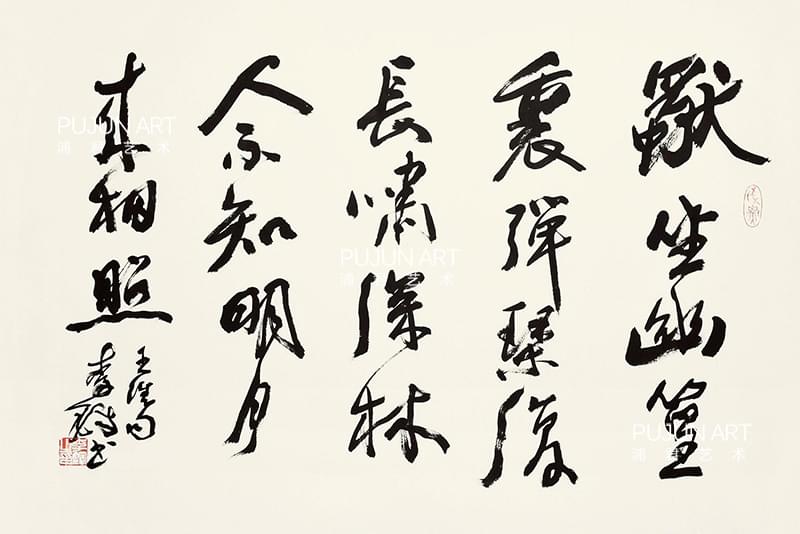 獨坐幽篁
裏彈琴復
長嘯深林
人不知明月
來相照
王维句
李 书
PUJUN ART
浦 君 艺 术
PUJUN ART
浦 君 艺 术
PUJUN ART
浦 君 艺 术